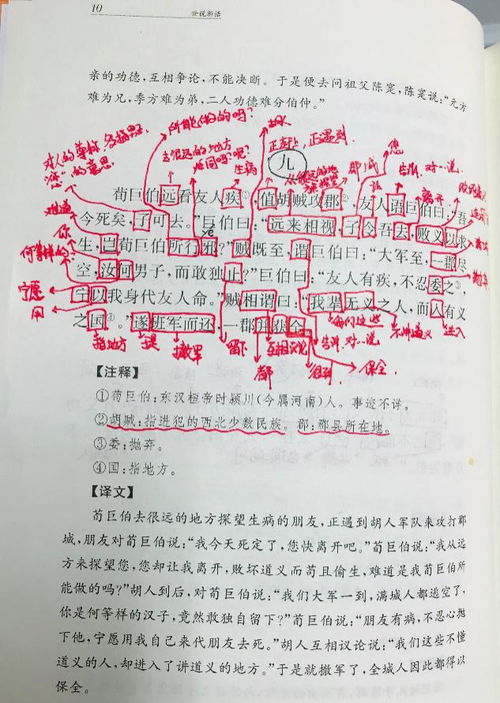 10
世说新语
亲的功德,互相争论,不能决断。于是便去问祖父陈寔,陈寔说:“元方
难为兄,季方为弟,二人功德难分伯仲。”
所能做的吗?
对人的尊称
“您”的意思
去很远的地方
生病
胡人
正赶上,正遇到
儿
郡城
您
告诉,对…说
离开
荀巨伯远看友人疾①,值胡贼攻郡②,友人语巨伯曰:“吾
难道
今死矣,子可去。”巨伯曰:“远来相视,子令吾去,败义以求
你
生,岂荀巨伯所行邪?”贼既至,谓巨伯曰:“大军至,一郡尽
何等样的?
空,汝何男子,而敢独止?”巨伯曰:“友人有疾,不忍委之③,
宁愿
宁以我身代友人命。”贼相谓曰:“我辈无义之人,而入有义
用
之国④。”遂班军而还,一郡并获全。
指地方
撤军
留下
都
互相议论
得到
告诉,对…说
我们这些
不讲道义
进入
保全。
【注释】
①荀巨伯:东汉桓帝时颍川(今属河南)人。事迹不详。
②胡贼:指进犯的西北少数民族。郡:郡县所在地。
③委:抛弃。
④国:指地方。
【译文】
荀巨伯去很远的地方探望生病的朋友,正遇到胡人军队来攻打郡
城,朋友对荀巨伯说:“我今天死定了,您快离开吧。”荀巨伯说:“我从远
方来探望您,您却让我离开,败坏道义而苟且偷生,难道是我荀巨伯所
能做的吗?”胡人到后,对荀巨伯说:“我们大军一到,满城人都逃空了,
你是何等样的汉子,竟然敢独自留下?”荀巨伯说:“朋友有病,不忍心抛
下他,宁愿用我自己来代朋友去死。”胡人互相议论说:“我们这些不懂
道义的人,却进入了讲道义的地方。”于是就撤军了,全城人因此都得以
保全。